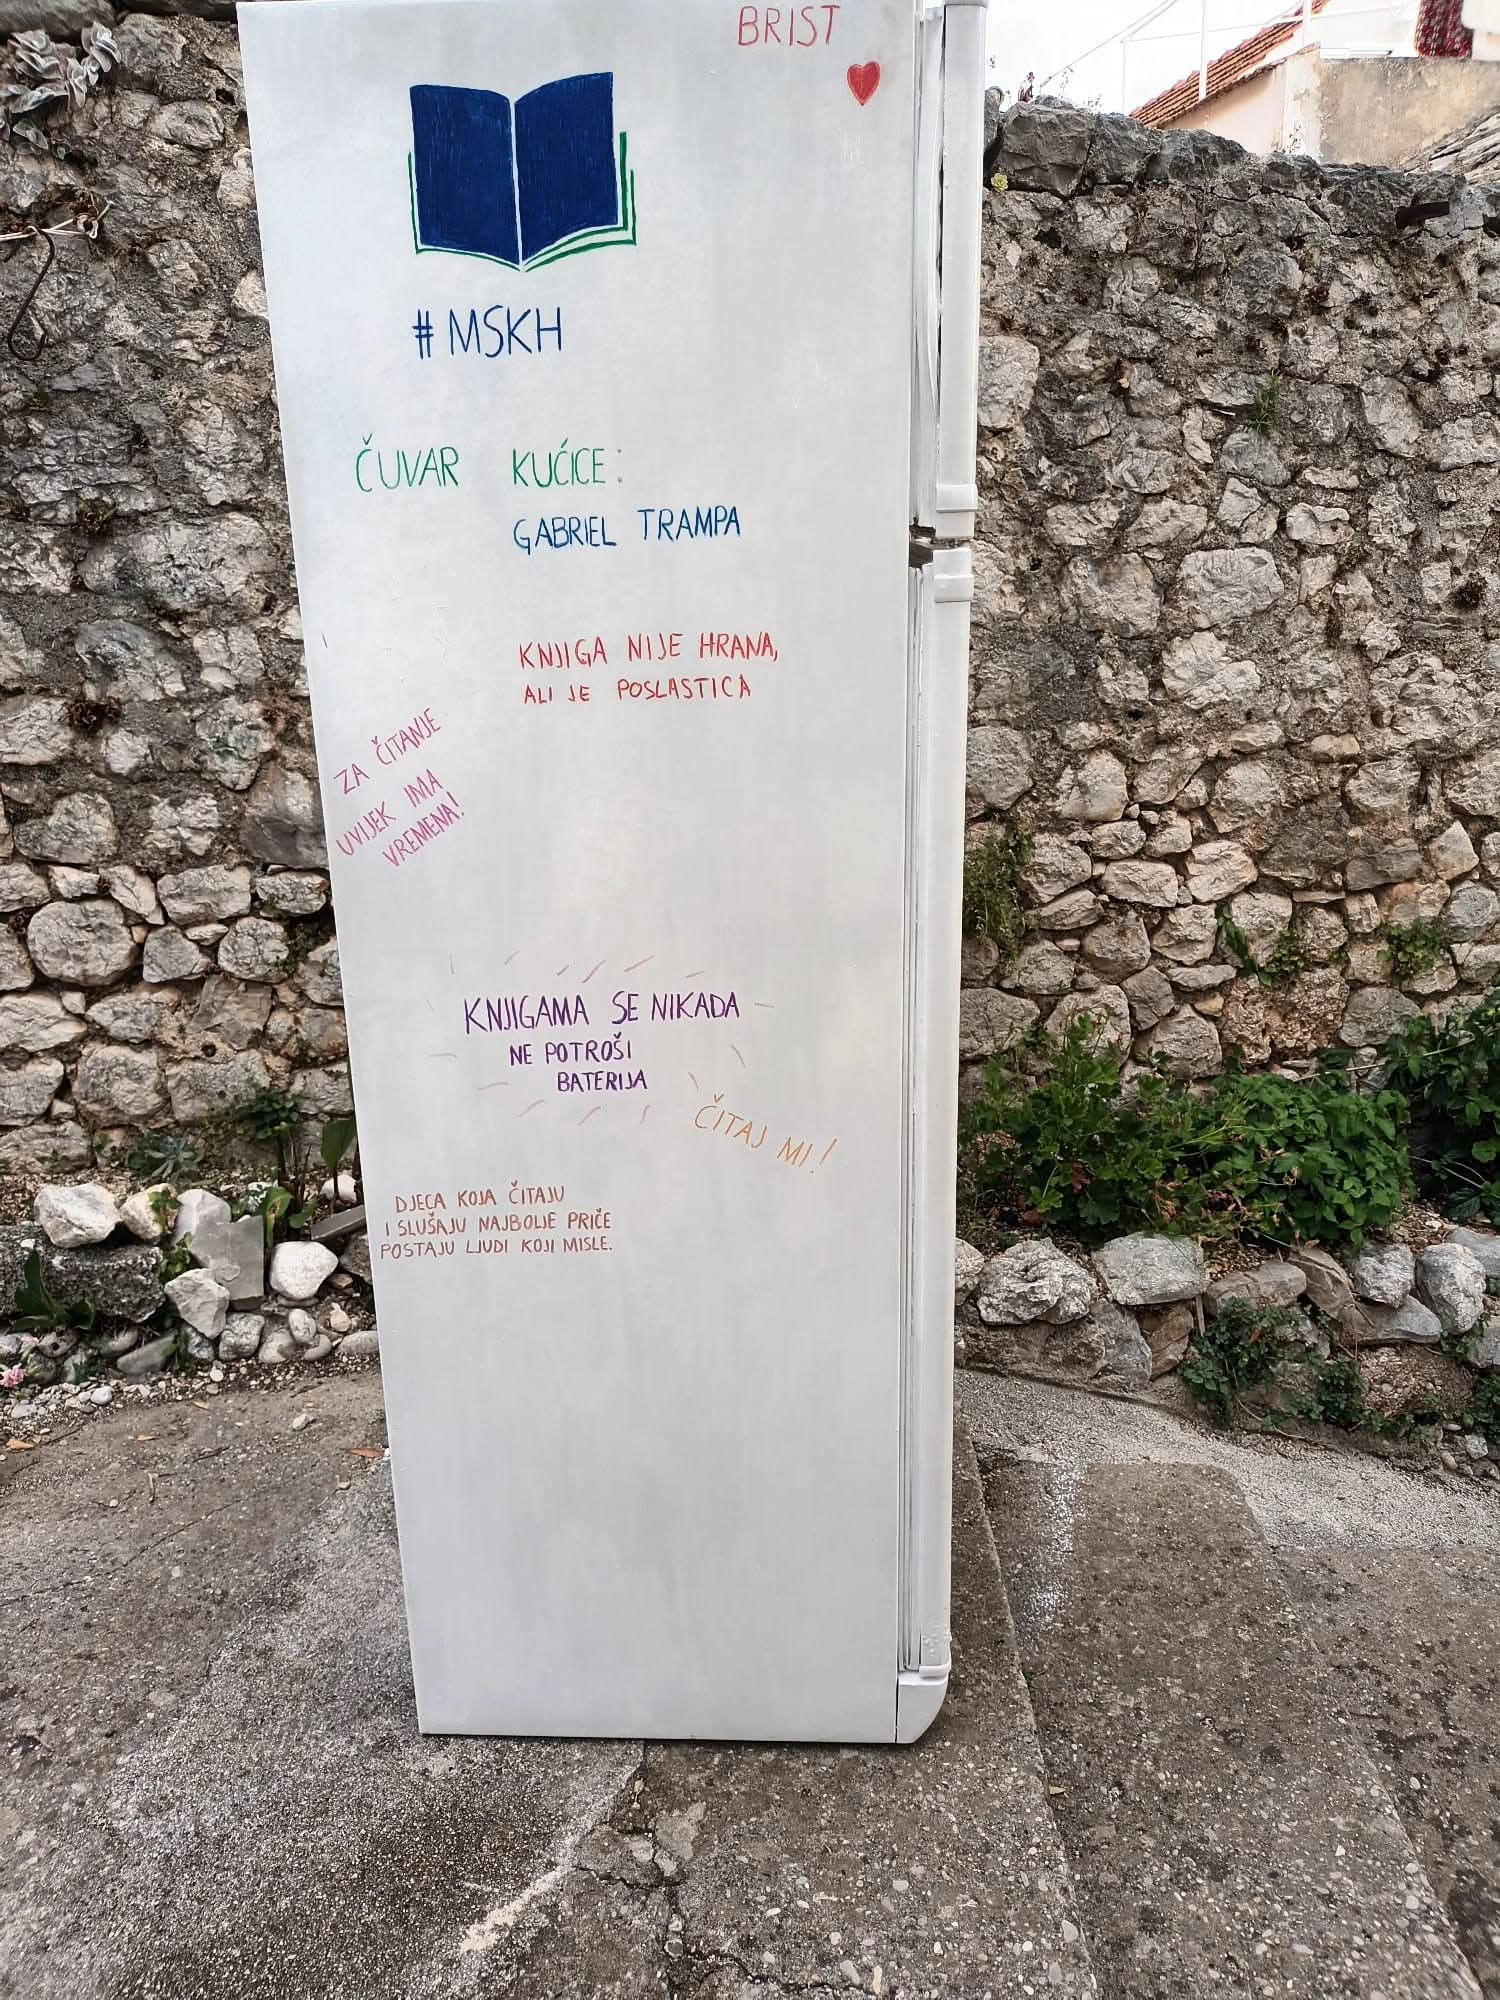 BRIST
#MSKH
ČUVAR KUĆICE:
GABRIEL TRAMPA
KNJIGA NIJE HRANA,
ALI JE POSLASTICA
ZA ČITANJE
UVIJEK IMA
VREMENA!
KNJIGAMA SE NIKADA
NE POTROŠI
BATERIJA
ČITAJ MI!
DJECA KOJA ČITAJU
I SLUŠAJU NAJBOLJE PRIČE
POSTAJU LJUDI KOJI MISLE.